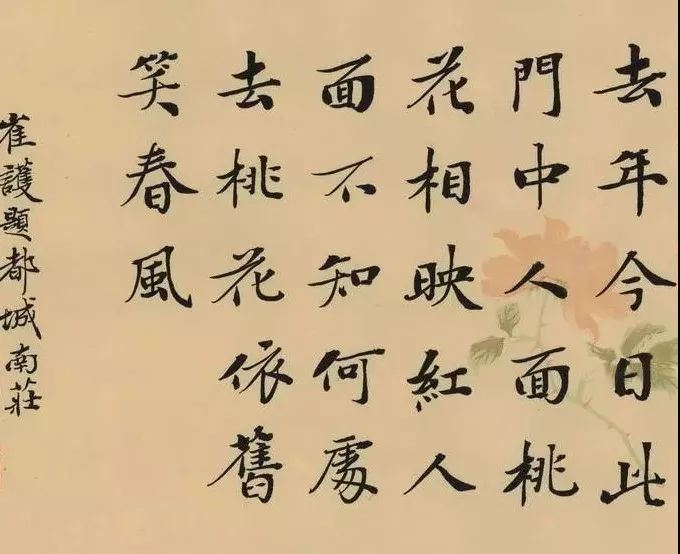 去年今日此
門中人面桃
花相映紅人
面不知何處
去桃花依舊
笑春風
崔護題都城南莊